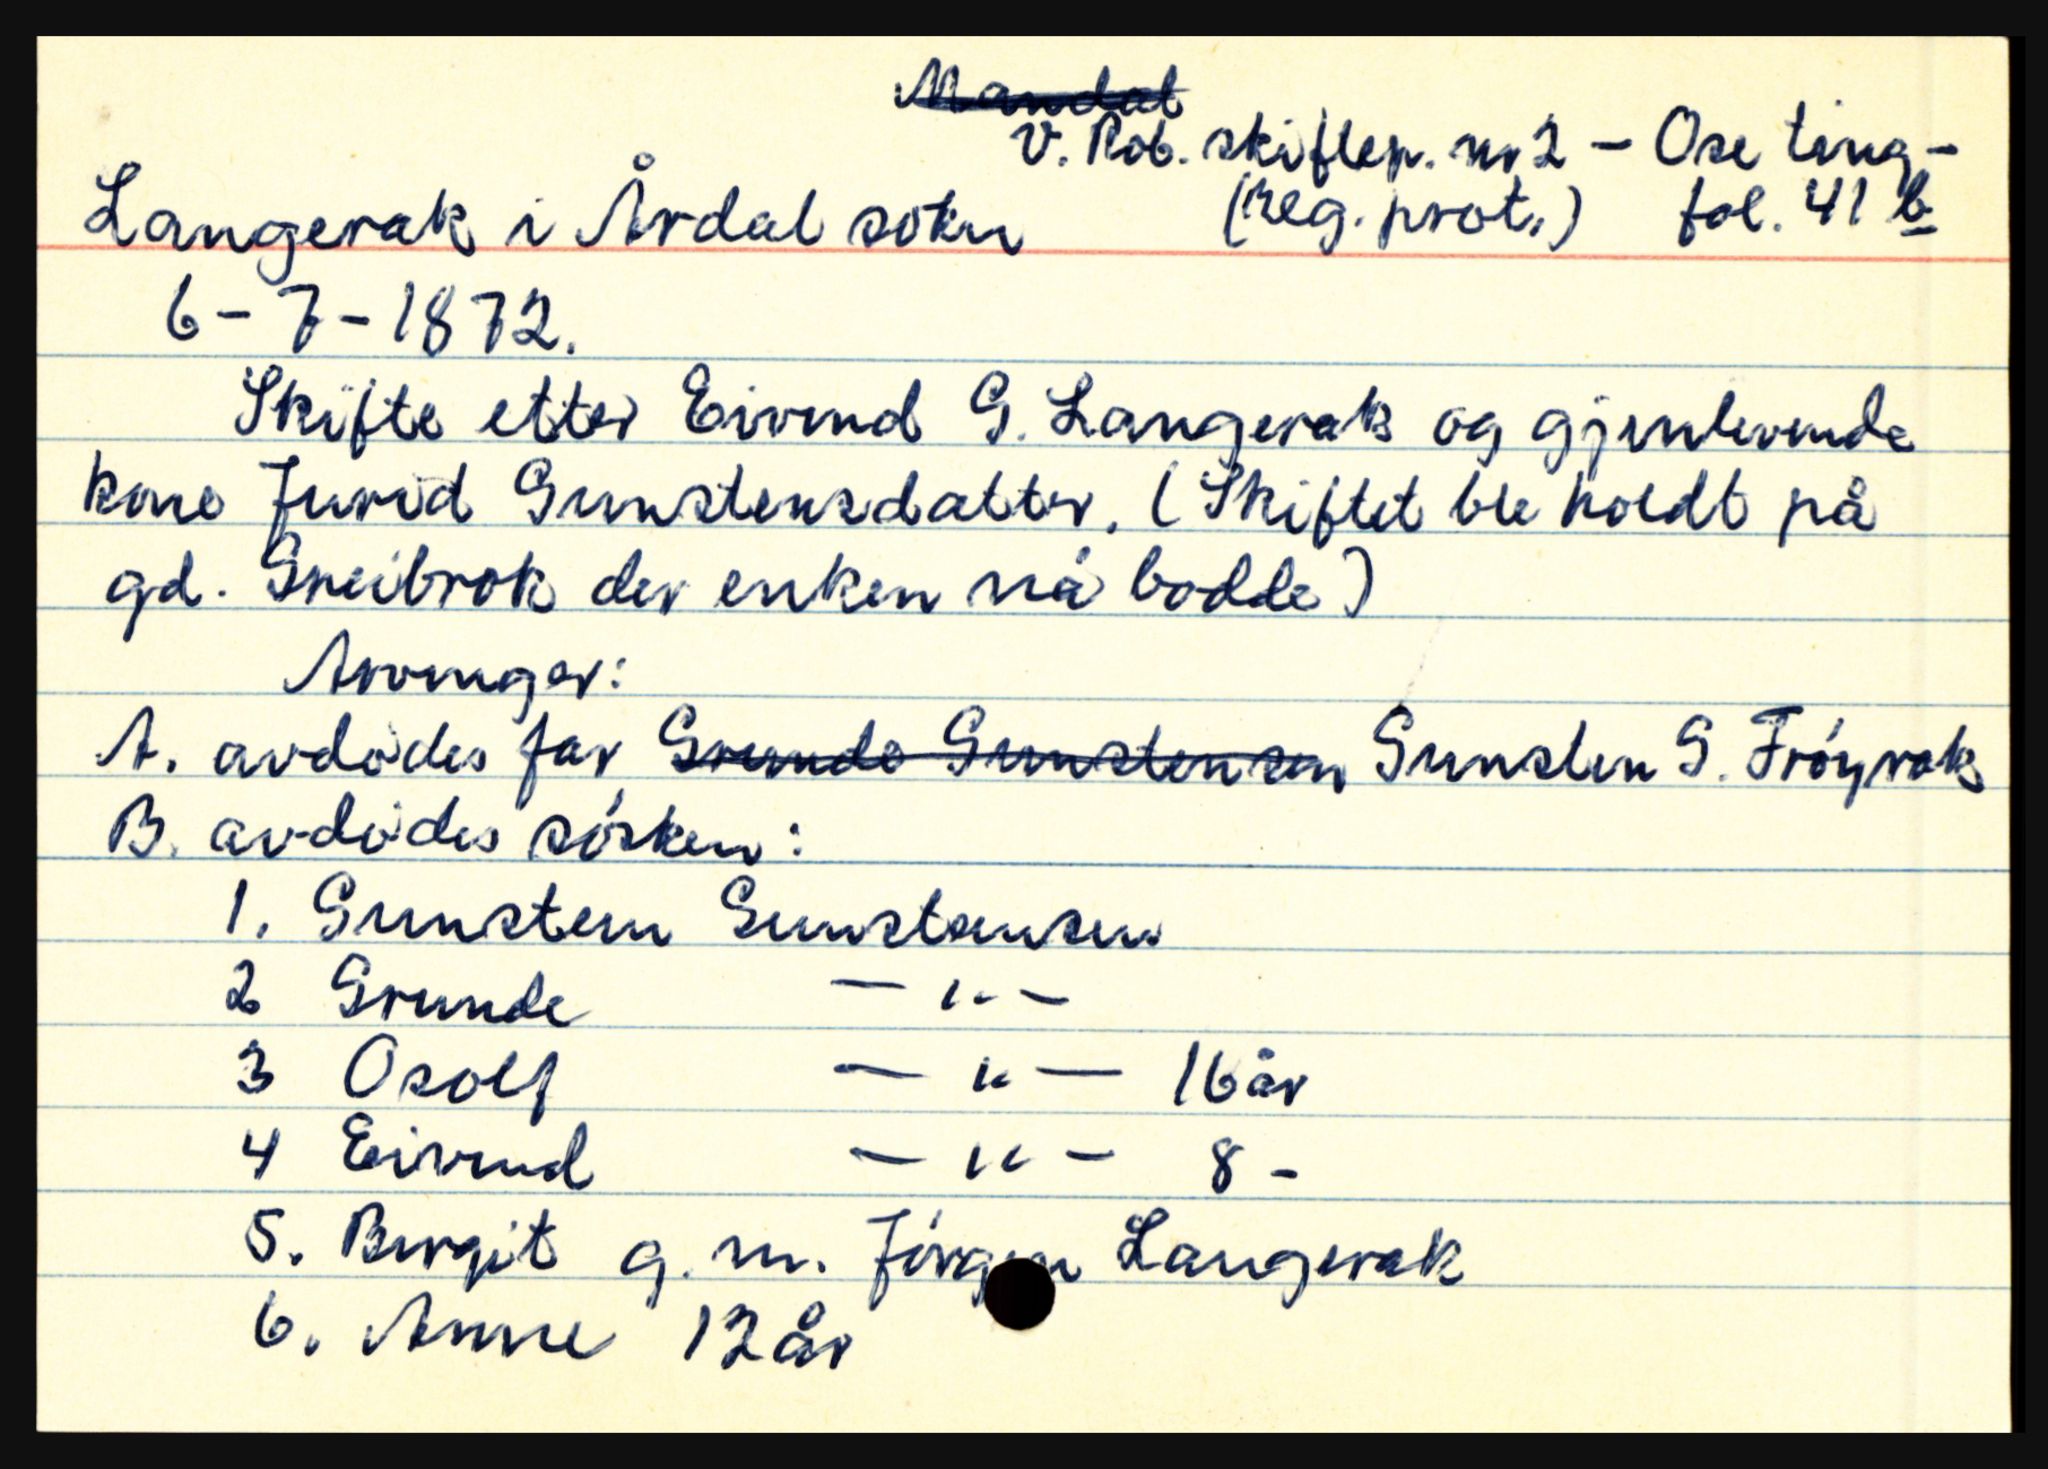 Mandal
V. Rob. skiftep. nr 2 - Ose ting-
Langerak i Årdal sokn (reg. prot.) fol. 41 b
6-7-1872.
Skifte etter Eivind G. Langerak og gjenlevende
kone Jurid Gunstensdatter. (Skiftet ble holdt på
gd. Greibrok der enken nå bodde)
Arvinger:
A. avdødes far Grunde Gunstensen Gunsten G. Frøyrak
B. avdødes søsken:
1. Gunstein Gunstensen
2 Grunde — " —
3 Osolf — " — 16 år
4 Eivind — " — 8 -
5. Birgit g. m. Jørgen Langerak
6. Anne 12 år